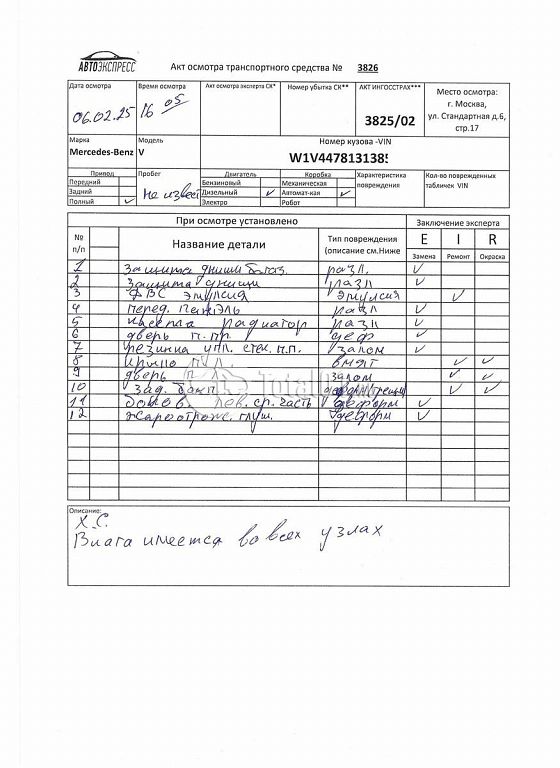 АВТОЭКСПРЕСС
Акт осмотра транспортного средства № 3826
Дата осмотра Время осмотра Акт осмотра эксперта СК* Номер убытка СК** АКТ ИНГОССТРАХ*** Место осмотра:
06.02.25 16 05 3825/02 г. Москва,
ул. Стандартная д.6,
стр.17
Марка Модель Номер кузова -VIN
Mercedes-Benz V W1V4478131385
Привод Пробег Двигатель Коробка Характеристика повреждения Кол-во поврежденных табличек VIN
Передний Не извест Бензиновый Механическая
Задний Дизельный ✓ Автомат-кая ✓
Полный ✓ Электро Робот
При осмотре установлено Заключение эксперта
№ п/п Название детали Тип повреждения (описание см.Ниже E I R
Замена Ремонт Окраска
1 Защита днища разл. ✓
2 Защита днища разл ✓
3 ДВС эмульсия эмулсия ✓
4 перед. разл ✓
5 кассета радиатор разл ✓
6 дверь п.пр. деф ✓
7 резинка упл. стек. п.п. залом ✓
8 крыло п л. вмят ✓ ✓
9 дверь п л залом ✓ ✓
10 Зад. бамп ✓ ✓
11 лев. ср. часть деформ ✓
12 жароотраж. глуш. деформ ✓
Total
Описание:
Х.С.
Влага имеется во всех узлах